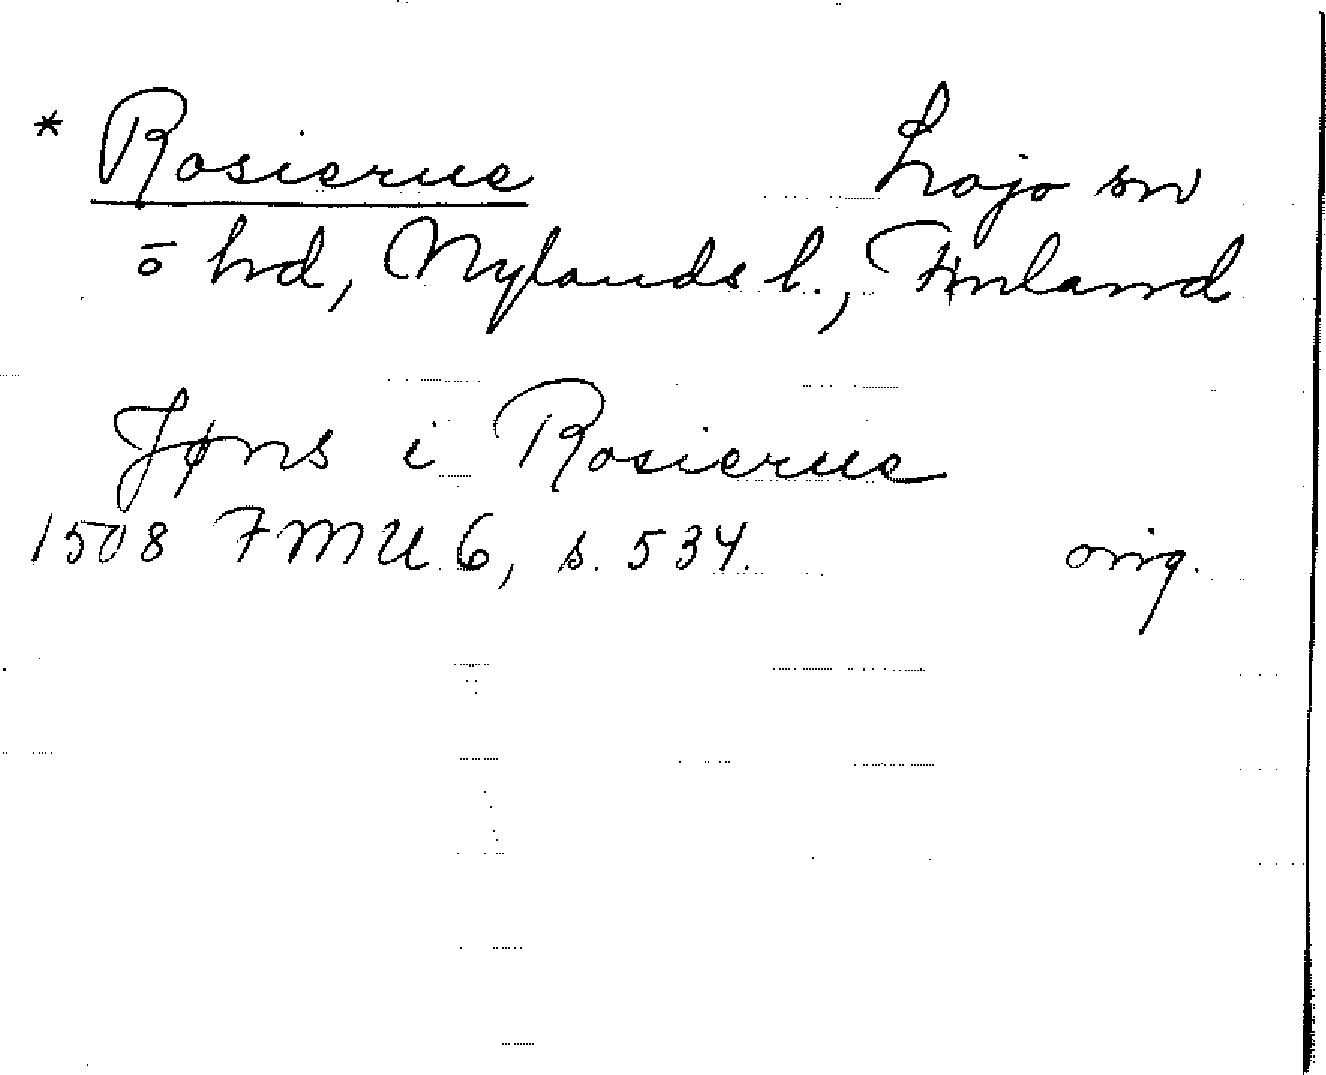 * Rosierue Lojo sn
o hd, Nylands l., Finland
Jøns i Rosierue
1508 FMU 6, s. 534. orig.